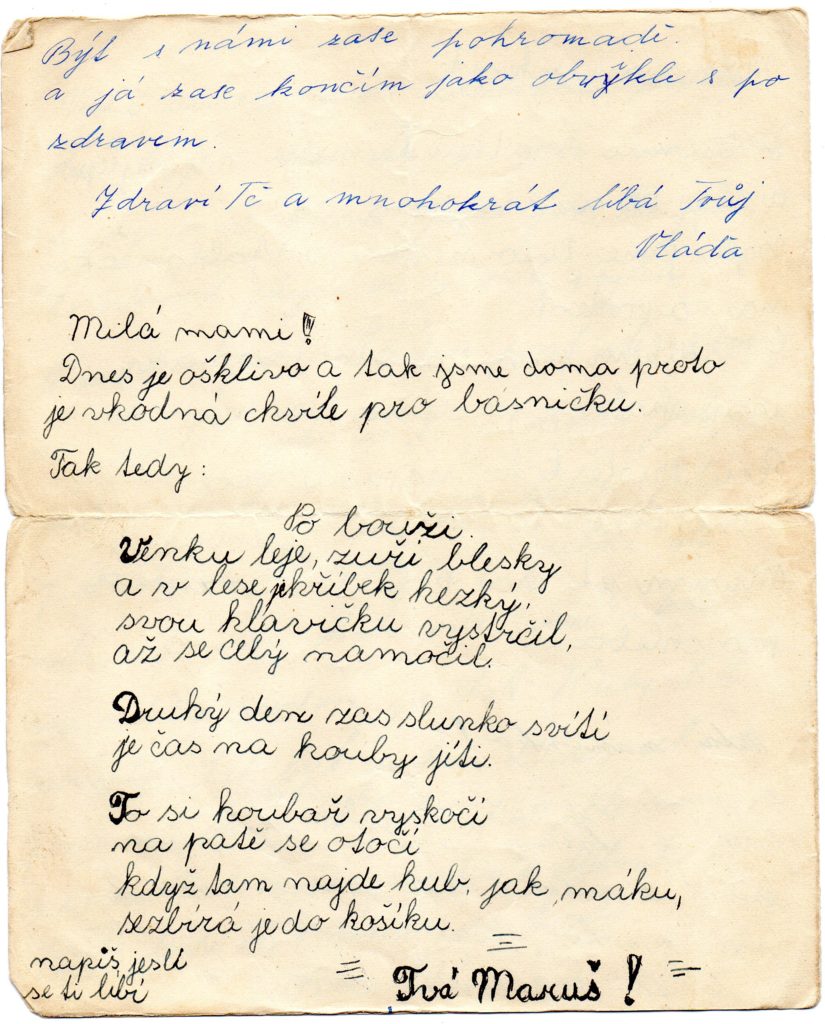 Být s námi zase pohromadě.
a já zase končím jako obvykle s po
zdravem.
Zdraví Tě a mnohokrát líbá Tvůj
Vláďa
Milá mami!
Dnes je ošklivo a tak jsme doma proto
je vhodná chvíle pro básničku.
Tak tedy:
Po bouři.
Venku leje, zuří blesky
a v lese je hříbek hezký,
svou hlavičku vystrčil,
až se celý namočil.
Druhý den zas slunko svítí
je čas na houby jíti.
To si houbař vyskočí
na patě se otočí
když tam najde hub, jak máku,
sezbírá je do košíku.
napiš jeslí
se ti líbí
Tvá Maruš!